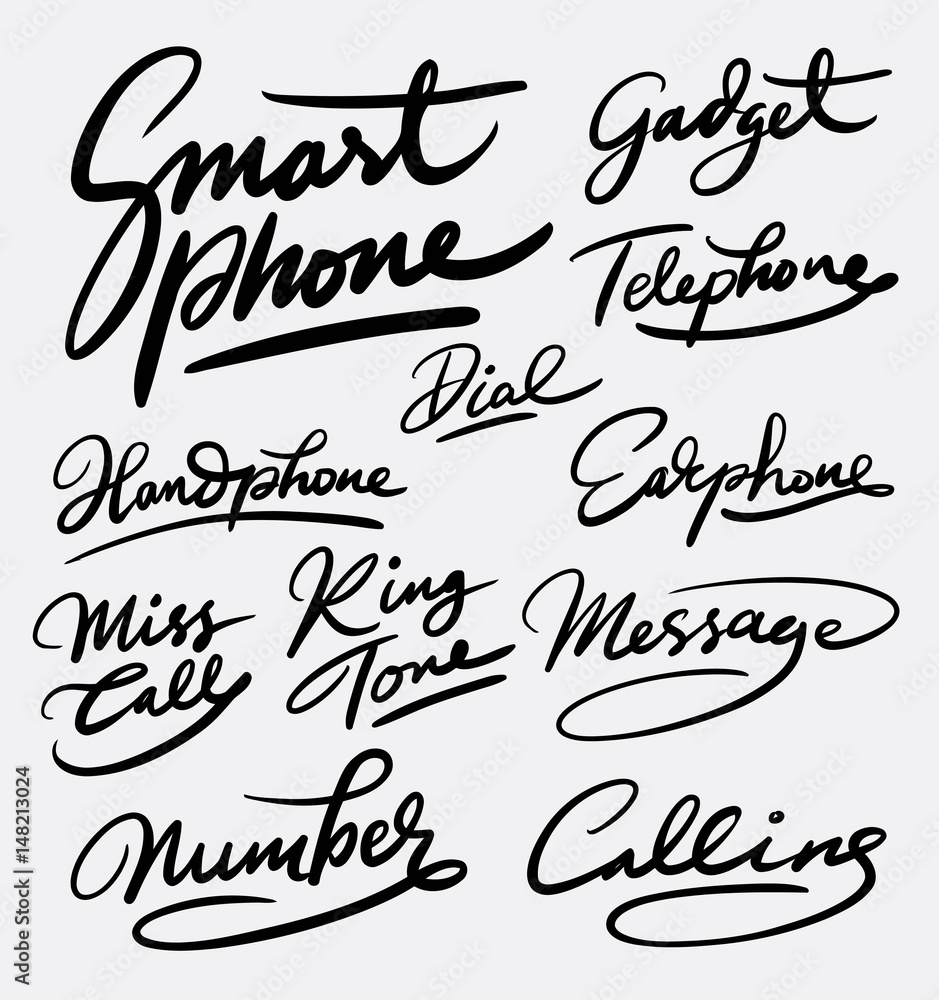 Smart
phone
Gadget
Telephone
Dial
Handphone
Earphone
Miss
Call
Ring
Tone
Message
Number
Calling
Adobe Stock | #148213024